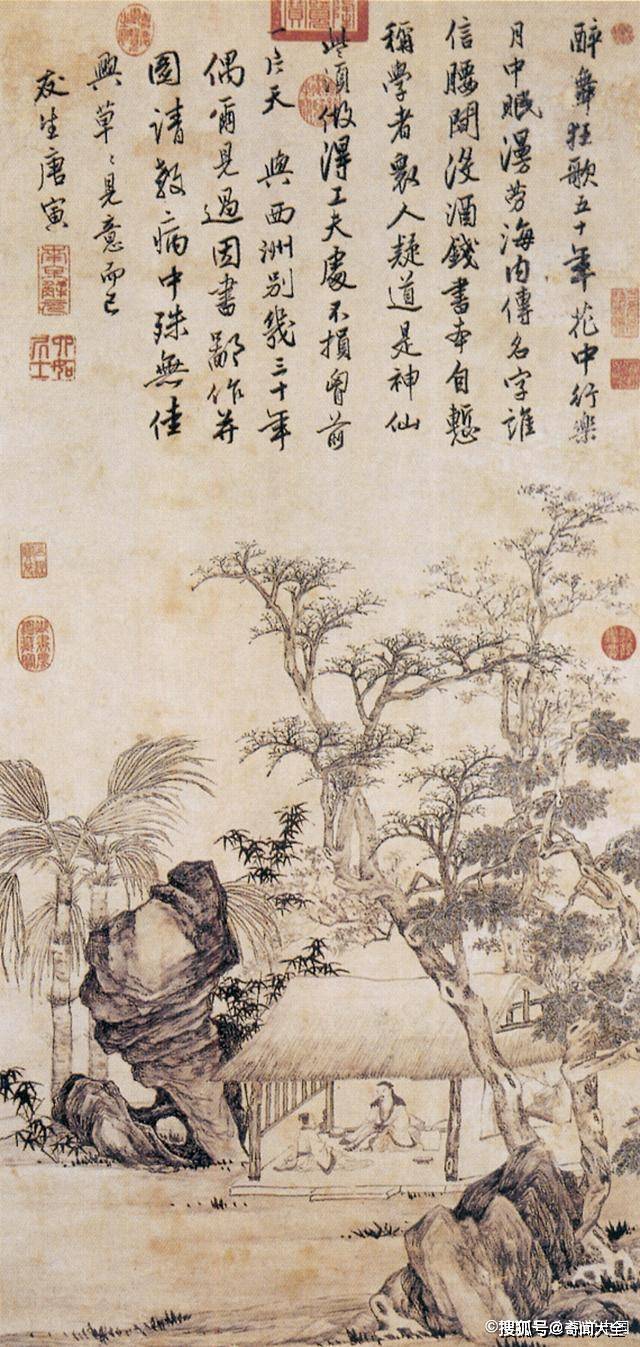 醉舞狂歌五十年花中行樂
月中眠漫勞海内傳名字誰
信腰間没酒錢書本自慙
稱學者衆人疑道是神仙
些須做得工夫處不損胷前
一片天 與西洲別幾三十年
偶爾見過因書鄙作并
圖請教病中殊無佳
興草〻見意而已
友生唐寅
南京解元
六如居士
搜狐号@奇闻大全